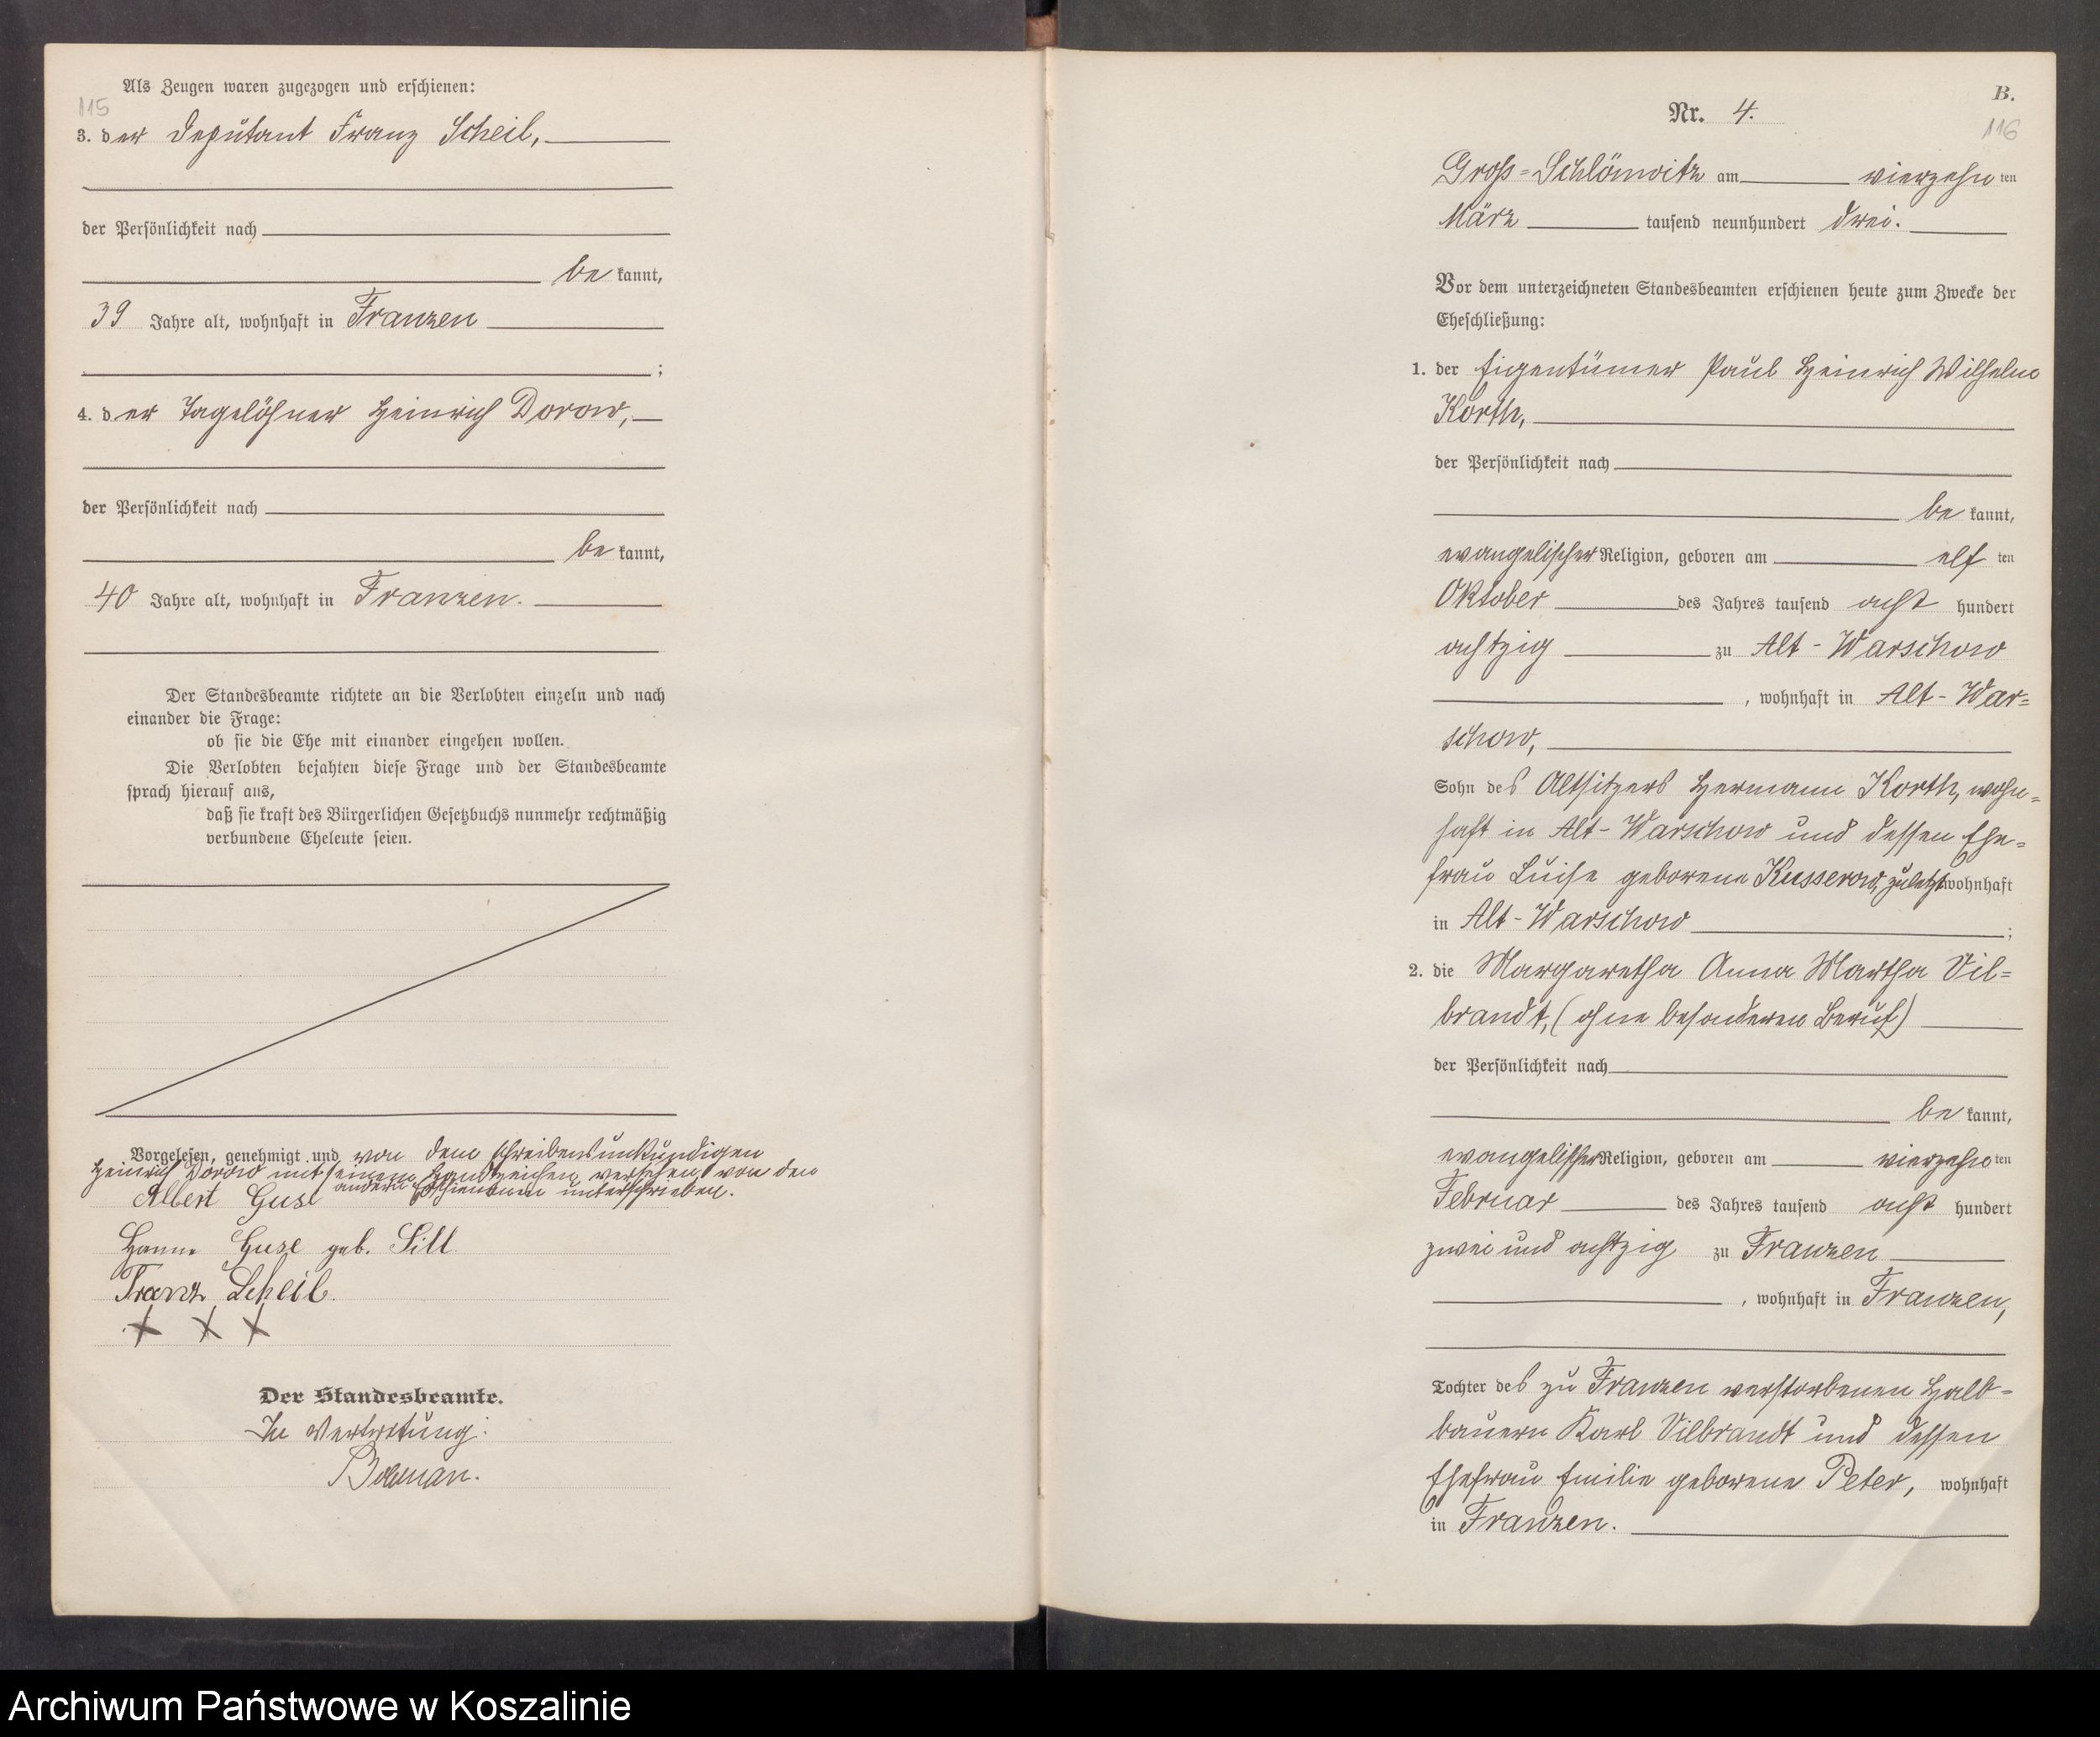 Als Zeugen waren zugezogen und erschienen:
115
3. der Deputant Franz Scheil,
der Persönlichkeit nach
be kannt,
39 Jahre alt, wohnhaft in Franzen
;
4. der Tagelöhner Heinrich Dorow,
der Persönlichkeit nach
be kannt,
40 Jahre alt, wohnhaft in Franzen.
Der Standesbeamte richtete an die Verlobten einzeln und nach
einander die Frage:
ob sie die Ehe mit einander eingehen wollen.
Die Verlobten bejahten diese Frage und der Standesbeamte
sprach hierauf aus,
daß sie kraft des Bürgerlichen Gesetzbuchs nunmehr rechtmäßig
verbundene Eheleute seien.
Vorgelesen, genehmigt und von dem schreibensunkundigen
Heinrich Dorow mit seinem Handzeichen versehen, von den
andern Erschienenen unterschrieben.
Albert Guse
Guse geb. Sill
Franz Scheil.
+ X X
Der Standesbeamte.
In Vertretung:
B.
Nr. 4.
116
Groß-Schlönwitz am vierzehn ten
März tausend neunhundert drei.
Vor dem unterzeichneten Standesbeamten erschienen heute zum Zwecke der
Eheschließung:
1. der Eigentümer Paul Heinrich Wilhelm
Korth,
der Persönlichkeit nach
be kannt,
evangelischer Religion, geboren am elf ten
Oktober des Jahres tausend acht hundert
achtzig zu Alt-Warschow
, wohnhaft in Alt-War=
schow,
Sohn des Altsitzers Hermann Korth, wohn=
haft in Alt-Warschow und dessen Ehe=
frau Luise geborene Kusserow, zuletzt wohnhaft
in Alt-Warschow ;
2. die Margaretha Anna Martha Vil=
brandt, (ohne besonderen Beruf)
der Persönlichkeit nach
be kannt,
evangelischer Religion, geboren am vierzehn ten
Februar des Jahres tausend acht hundert
zwei und achtzig zu Franzen
, wohnhaft in Franzen,
Tochter des zu Franzen verstorbenen Halb=
bauern Karl Vilbrandt und dessen
Ehefrau Emilie geborene Peter, wohnhaft
in Franzen.
Archiwum Państwowe w Koszalinie